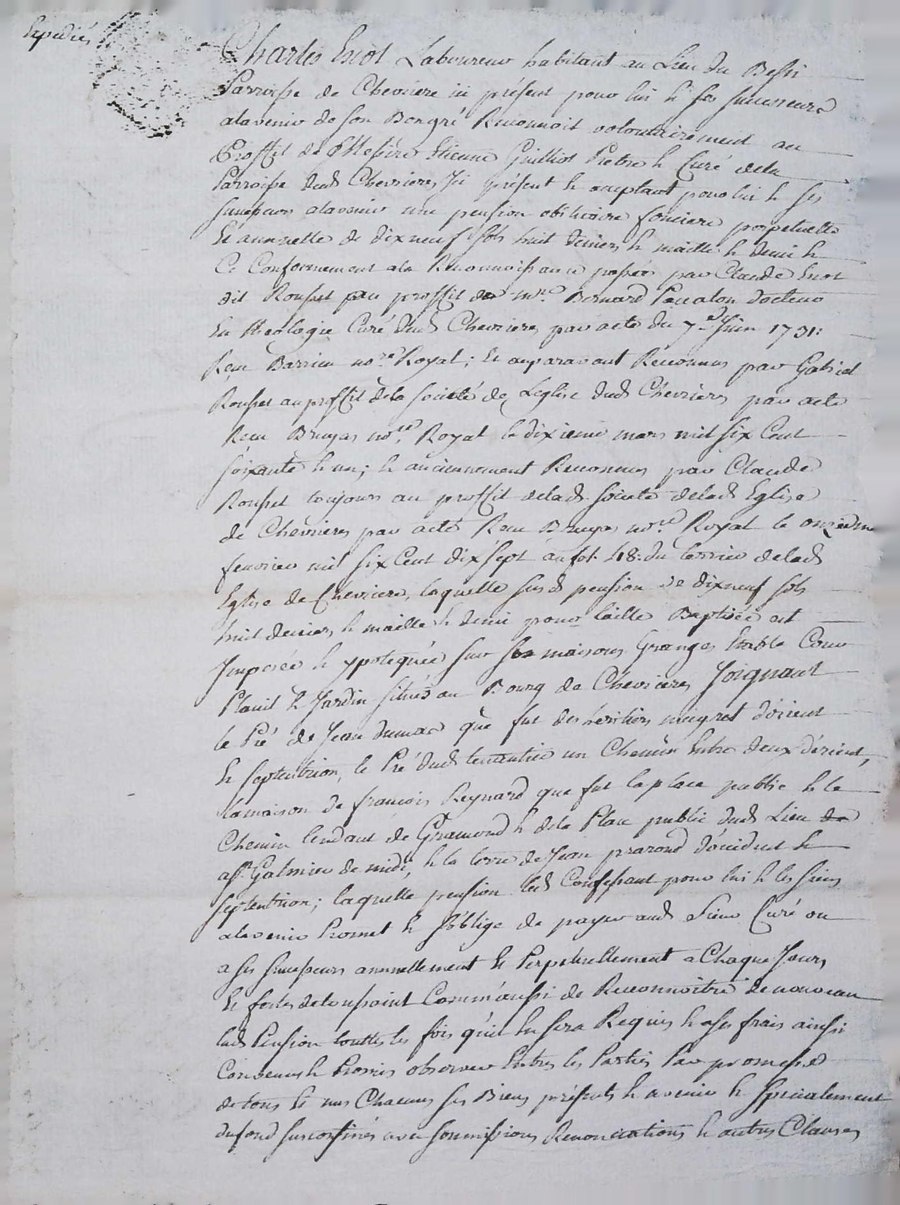 Expediés
Charles Enot Laboureur habitant au Lieu du Bessi
Parroisse de Chevriere ici présent pour lui & ses successeurs
alavenir de son Bongré Reconnoit volontairement au
Proffit de Messire Etienne Guilliot Pretre & Curé dela
Parroisse dud Chevrieres Ici présent & acceptant pour lui & ses
successeurs alavenir une pension obituaire fonciere perpetuelle
Et annuelle de dixneuf sols huit deniers & maille & demi &
Ce Conformement ala Reconnoissance passée par Claude Enot
dit Rousset au proffit de mre Bernard docteur
En theologie Curé dud Chevrieres par acte du 7e Juin 1731:
Receu Barrieu nore Royal; Et auparavant Reconnues par Gabriel
Rousset au proffit dela societé de Leglise dud Chevrieres par acte
Receu Bruyas nore Royal le dixieme mars mil six Cent
soixante & un; & anciennement Reconnues par Claude
Rousset toujours au proffit delad societé delad Eglise
de Chevrieres par acte Receu Bruyas nore Royal le onzieme
fevrier mil six Cent dix sept au fol. 48: du terrier delad
Eglise de Chevriere, laquelle susd pension de dixneuf sols
huit deniers & maille & demi pour laille Baptisée est
Imposée & ypotequée sur ses maisons Granges Etable Cour
Plassil & Jardin situés au Bourg de Chevrieres Joignant
le Pré de Jean dumas que fut des heritiers mugnet d'orient
Et septentrion, le Pré dud tenantier un Chemin Entre deux d'orient,
la maison de francois Reynard que fut la place public & le
Chemin tendant de Gramond & de la Place public dud Lieu de
a st Galmier de midi, & la terre de Jean prarond d'occident &
septentrion; laquelle pension led Confessant pour lui & les siens
alavenir Promet & s'oblige de payer aud sieur Curé ou
a ses successeurs annuellement Et Perpetuellement a Chaque Jours
Et festes detoussaint Comm'aussi de Reconnoitre denouveau
lad Pension touttes les fois qu'il En sera Requis & a ses frais ainsi
Convenu & Promis observer Entre les Parties Par promesse
de tous Et uns Chacuns ses Biens présents & avenir & specialement
du fond surconfinés avec soumissions Renonciations & autres Clauses